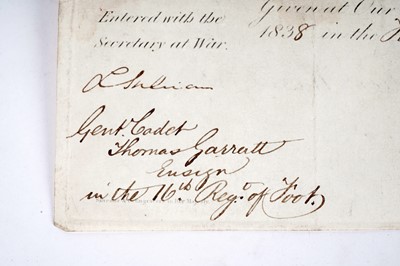 Entered with the
Secretary at War.
Given at Our
1838 in the
L Sulivan
Gent. Cadet
Thomas Garratt
Ensign
in the 16th Reg.t of Foot.